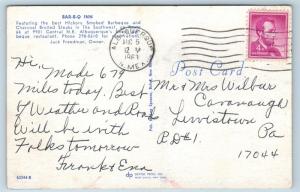 BAR-B-Q INN
Featuring the best Hickory Smoked Barbeque and
Charcoal Broiled Steaks in the Southwest.
at 9901 Central N.E. Albuquerque's
beque restaurant. Phone 298-8610 for
Jack Freedman, Owner.
ALBUQUERQUE
PM
1963
N. MEX.
Post Card
Hi, Made 679
miles today. Best
of Weather and Road
Will be with
Folks tomorrow
Frank & Ena
Mr and Mrs Wilbur
Cavanaugh
Lewistown
RD#1. Pa
17044
63344-B
DEXTER PRESS, INC.